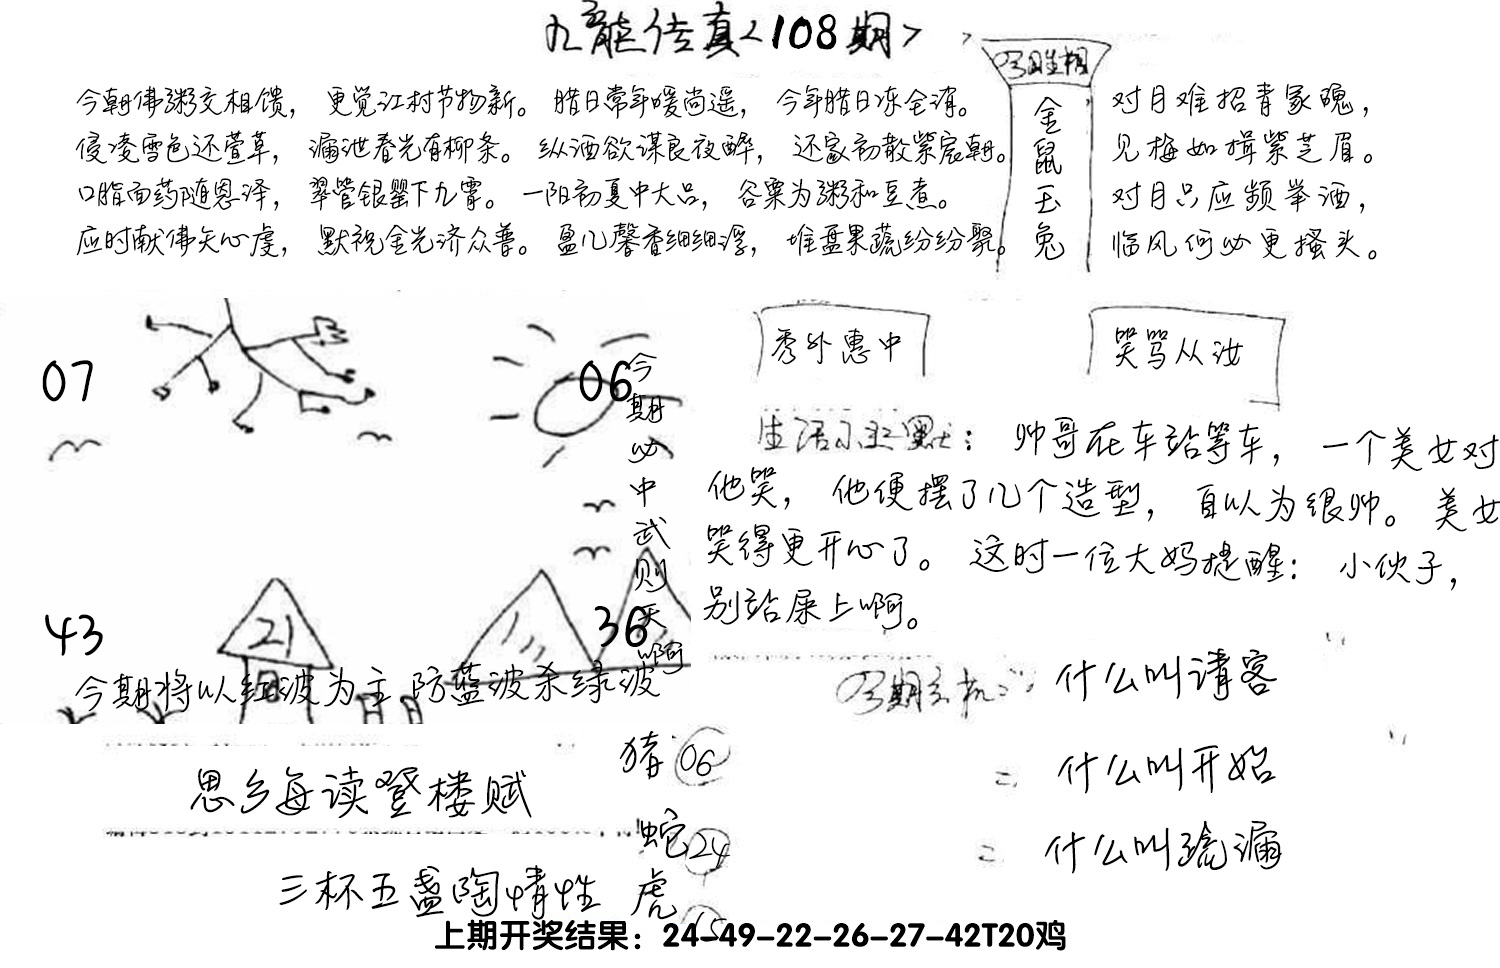 九龙传真<108期>
今期生相
金鼠玉兔
今朝佛粥交相馈，更觉江村节物新。腊日常年暖尚遥，今年腊日冻全消。
侵凌雪色还萱草，漏泄春光有柳条。纵酒欲谋良夜醉，还家初散紫宸朝。
口脂面药随恩泽，翠管银罂下九霄。一阳初夏中大吕，谷粟为粥和豆煮。
应时献佛矢心虔，默祝金光济众普。盈几馨香细细浮，堆盘果蔬纷纷聚。
对月难招青冢魂，
见梅如揖紫芝眉。
对月只应频举酒，
临风何必更搔头。
07
06
43
36
21
今期必中武则天啊
今期将以红波为主 防蓝波杀绿波
秀外惠中
笑骂从汝
生活小幽默：帅哥在车站等车，一个美女对
他笑，他便摆了几个造型，自以为很帅。美女
笑得更开心了。这时一位大妈提醒：小伙子，
别站屎上啊。
今期玄机：什么叫请客
= 什么叫开始
= 什么叫疏漏
思乡每读登楼赋
三杯五盏陶情性
猪 06
蛇 24
虎 15
上期开奖结果：24-49-22-26-27-42T20鸡